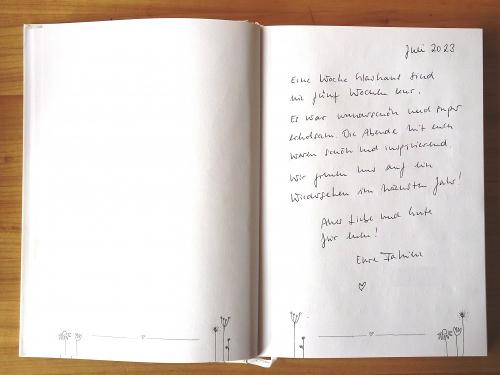 Juli 2023
Eine Woche Glashaus sind
wie fünf Wochen Kur.
Es war wunderschön und super
erholsam. Die Abende mit euch
waren schön und inspirierend.
Wir freuen uns auf ein
Wiedersehen im nächsten Jahr!
Alles Liebe und Gute
für euch!
Eure